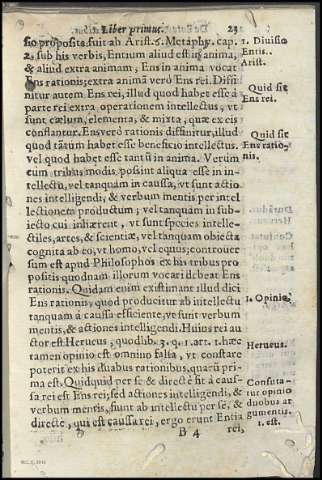 Liber primus. 23
sio proposita fuit ab Arist. 5. Metaphy. cap.
2. sub his verbis, Entium aliud est in anima,
& aliud extra animam, Ens in anima vocat
Ens rationis; extra animā verò Ens rei. Diffi
nitur autem Ens rei, illud quod habet esse à
parte rei extra operationem intellectus, vt
sunt cælum, elementa, & mixta, quæ ex eis
constantur. Ens verò rationis diffinitur, illud
quod tātum habet esse beneficio intellectus.
vel quod habet esse tantū in anima. Verum
cum tribus modis possint aliqua esse in in-
tellectu, vel tanquam in caussa, vt sunt actio
nes intelligendi, & verbum mentis per intel
lectionem productum; vel tanquam in sub-
iecto cui inhærent, vt sunt species intelle-
ctiles, artes, & scientiæ, vel tanquam obiecta
cognita ab eo, vt homo, vel equus; controuer
sum est apud Philosophos ex his tribus pro
positis quodnam illorum vocari debeat Ens
rationis. Quidam enim existimant illud dici
Ens rationis, quod producitur ab intellectu
tanquam à caussa efficiente, vt sunt verbum
mentis, & actiones intelligendi. Huius rei au
ctor est Herueus, quodlib. 3. q. 1. art. 1. hæc
tamen opinio est omnino falsa, vt constare
poterit ex his duabus rationibus, quarū pri-
ma est. Quidquid per se & directè fit à caus-
sa rei est Ens rei; sed actiones intelligendi, &
verbum mentis, fiunt ab intellectu per se, &
directe, qui est caussa rei, ergo erunt Entia
B 4 rei,
1. Diuisio
Entis.
Arist.
Quid sit
Ens rei.
Quid sit
Ens ratio-
nis.
1. Opinio.
Herueus.
Confuta-
tur opinio
duobus ar
gumentis.
1. est.